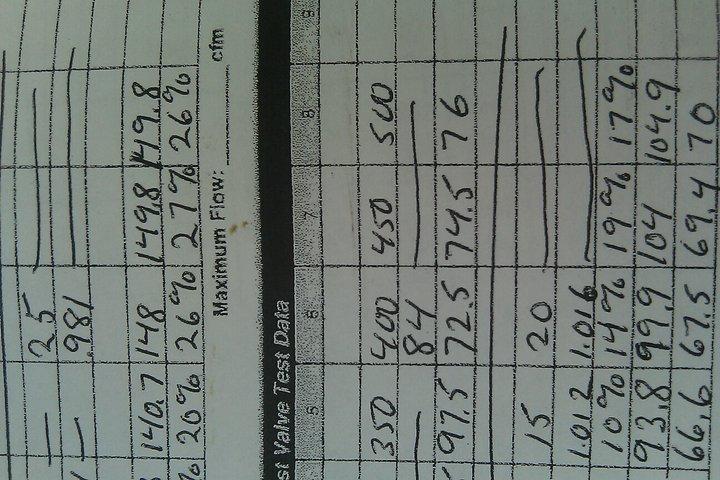 25
.981
140.7 148 149.8 149.8
% 20% 26% 27% 26%
Maximum Flow: cfm
Valve Test Data
5 6 7 8 9
350 400 450 500
84
97.5 72.5 74.5 76
15 20
1.012 1.016
10% 14% 19% 17%
93.8 99.9 104 104.9
66.6 67.5 69.4 70